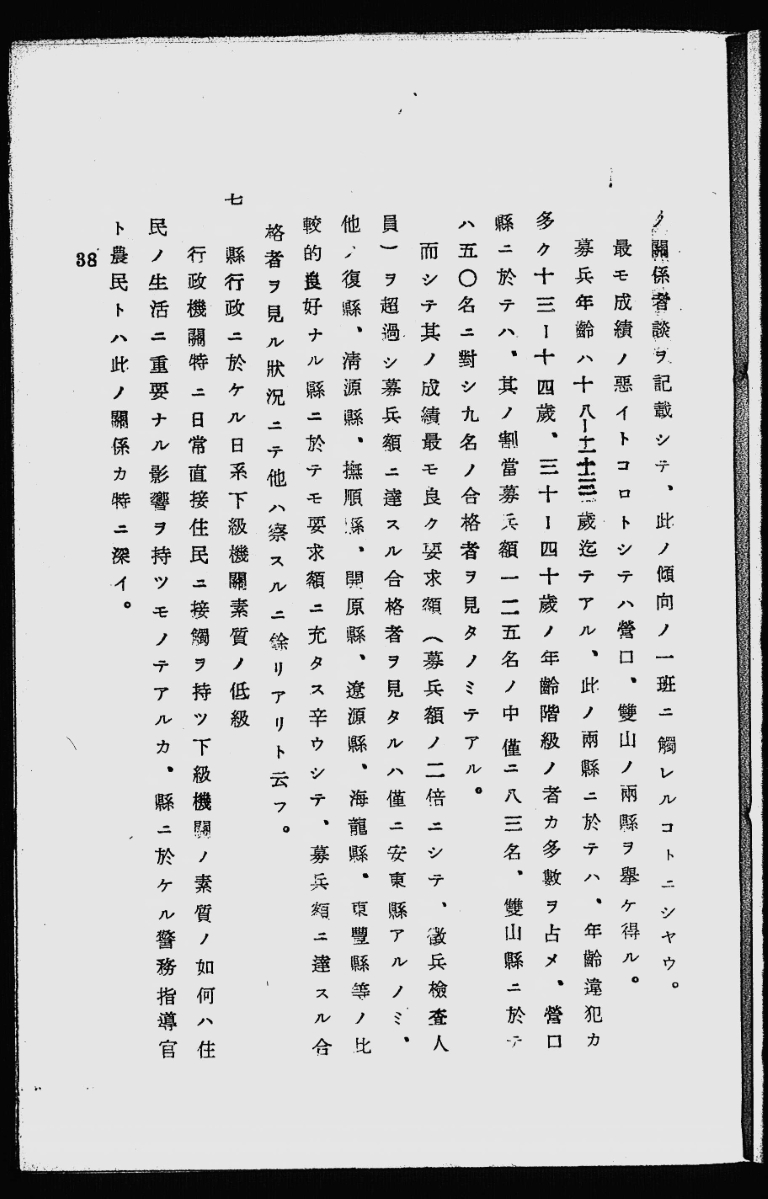 ノ關係者談ヲ記載シテ、此ノ傾向ノ一班ニ觸レルコトニシヤウ。
最モ成績ノ惡イトコロトシテハ營口、雙山ノ兩縣ヲ擧ケ得ル。
募兵年齡ハ十八ー二十三歲迄テアル、此ノ兩縣ニ於テハ、年齡違犯カ
多ク十三ー十四歲、三十ー四十歲ノ年齡階級ノ者カ多數ヲ占メ、營口
縣ニ於テハ、其ノ割當募兵額一二五名ノ中僅ニ八三名、雙山縣ニ於テ
ハ五〇名ニ對シ九名ノ合格者ヲ見タノミテアル。
而シテ其ノ成績最モ良ク要求額（募兵額ノ二倍ニシテ、徵兵檢査人
員）ヲ超過シ募兵額ニ達スル合格者ヲ見タルハ僅ニ安東縣アルノミ、
他ノ復縣、淸源縣、撫順縣、開原縣、遼源縣、海龍縣、東豐縣等ノ比
較的良好ナル縣ニ於テモ要求額ニ充タス辛ウシテ、募兵額ニ達スル合
格者ヲ見ル狀況ニテ他ハ察スルニ餘リアリト云フ。
七　縣行政ニ於ケル日系下級機關素質ノ低級
行政機關特ニ日常直接住民ニ接觸ヲ持ツ下級機關ノ素質ノ如何ハ住
民ノ生活ニ重要ナル影響ヲ持ツモノテアルカ、縣ニ於ケル警務指導官
ト農民トハ此ノ關係カ特ニ深イ。
38